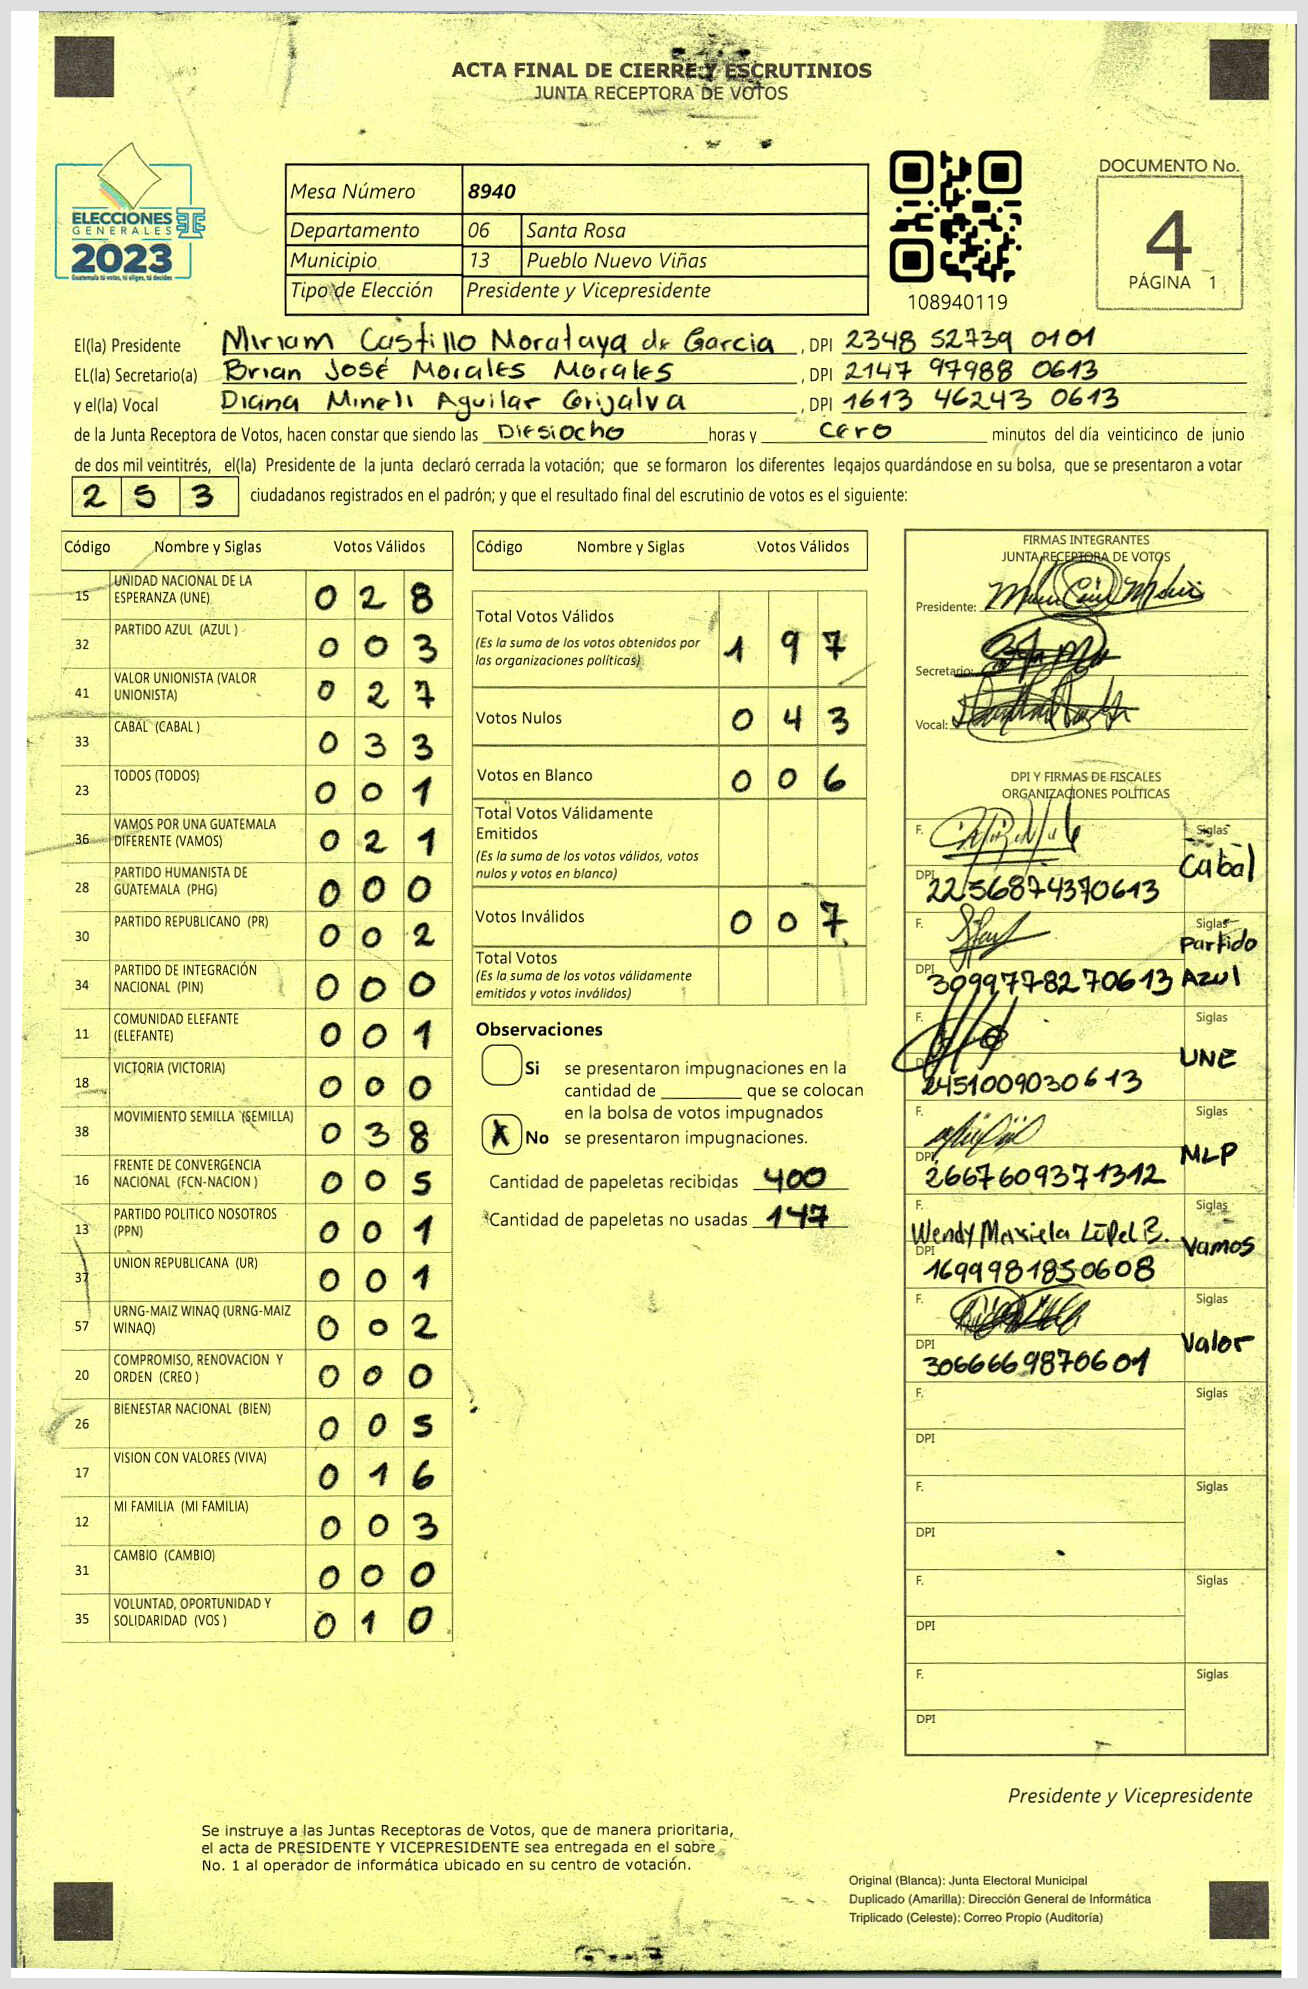 ACTA FINAL DE CIERRE Y ESCRUTINIOS
JUNTA RECEPTORA DE VOTOS
ELECCIONES
GENERALES
2023
Guatemala tú votas, tú eliges, tú decides
Mesa Número 8940
Departamento 06 Santa Rosa
Municipio 13 Pueblo Nuevo Viñas
Tipo de Elección Presidente y Vicepresidente
108940119
DOCUMENTO No.
4
PÁGINA 1
El(la) Presidente Miriam Castillo Morataya de Garcia , DPI 2348 52739 0101
EL(la) Secretario(a) Brian José Morales Morales , DPI 2147 97988 0613
y el(la) Vocal Diana Mineli Aguilar Grijalva , DPI 1613 46243 0613
de la Junta Receptora de Votos, hacen constar que siendo las Diesiocho horas y cero minutos del día veinticinco de junio
de dos mil veintitrés, el(la) Presidente de la junta declaró cerrada la votación; que se formaron los diferentes legajos guardándose en su bolsa, que se presentaron a votar
2 5 3 ciudadanos registrados en el padrón; y que el resultado final del escrutinio de votos es el siguiente:
Código Nombre y Siglas Votos Válidos
15 UNIDAD NACIONAL DE LA ESPERANZA (UNE) 0 2 8
32 PARTIDO AZUL (AZUL ) 0 0 3
41 VALOR UNIONISTA (VALOR UNIONISTA) 0 2 7
33 CABAL (CABAL ) 0 3 3
23 TODOS (TODOS) 0 0 1
36 VAMOS POR UNA GUATEMALA DIFERENTE (VAMOS) 0 2 1
28 PARTIDO HUMANISTA DE GUATEMALA (PHG) 0 0 0
30 PARTIDO REPUBLICANO (PR) 0 0 2
34 PARTIDO DE INTEGRACIÓN NACIONAL (PIN) 0 0 0
11 COMUNIDAD ELEFANTE (ELEFANTE) 0 0 1
18 VICTORIA (VICTORIA) 0 0 0
38 MOVIMIENTO SEMILLA (SEMILLA) 0 3 8
16 FRENTE DE CONVERGENCIA NACIONAL (FCN-NACION ) 0 0 5
13 PARTIDO POLITICO NOSOTROS (PPN) 0 0 1
37 UNION REPUBLICANA (UR) 0 0 1
57 URNG-MAIZ WINAQ (URNG-MAIZ WINAQ) 0 0 2
20 COMPROMISO, RENOVACION Y ORDEN (CREO ) 0 0 0
26 BIENESTAR NACIONAL (BIEN) 0 0 5
17 VISION CON VALORES (VIVA) 0 1 6
12 MI FAMILIA (MI FAMILIA) 0 0 3
31 CAMBIO (CAMBIO) 0 0 0
35 VOLUNTAD, OPORTUNIDAD Y SOLIDARIDAD (VOS ) 0 1 0
Código Nombre y Siglas Votos Válidos
Total Votos Válidos
(Es la suma de los votos obtenidos por
las organizaciones políticas) 1 9 7
Votos Nulos 0 4 3
Votos en Blanco 0 0 6
Total Votos Válidamente
Emitidos
(Es la suma de los votos válidos, votos
nulos y votos en blanco)
Votos Inválidos 0 0 7
Total Votos
(Es la suma de los votos válidamente
emitidos y votos inválidos)
Observaciones
Si se presentaron impugnaciones en la
cantidad de ________ que se colocan
en la bolsa de votos impugnados
X No se presentaron impugnaciones.
Cantidad de papeletas recibidas 400
Cantidad de papeletas no usadas 147
FIRMAS INTEGRANTES
JUNTA RECEPTORA DE VOTOS
Presidente:
Secretario:
Vocal:
DPI Y FIRMAS DE FISCALES
ORGANIZACIONES POLÍTICAS
F. Siglas
Cabal
DPI 2256874370613
F. Siglas
Partido
Azul
DPI 3099778270613
F. Siglas
UNE
2451009030613
F. Siglas
MLP
DPI 2667609371312
F. Siglas
Wendy Mariela López B. Vamos
DPI 1699981850608
F. Siglas
Valor
DPI 3066669870601
F. Siglas
DPI
F. Siglas
DPI
F. Siglas
DPI
F. Siglas
DPI
Presidente y Vicepresidente
Se instruye a las Juntas Receptoras de Votos, que de manera prioritaria,
el acta de PRESIDENTE Y VICEPRESIDENTE sea entregada en el sobre
No. 1 al operador de informática ubicado en su centro de votación.
Original (Blanca): Junta Electoral Municipal
Duplicado (Amarilla): Dirección General de Informática
Triplicado (Celeste): Correo Propio (Auditoría)